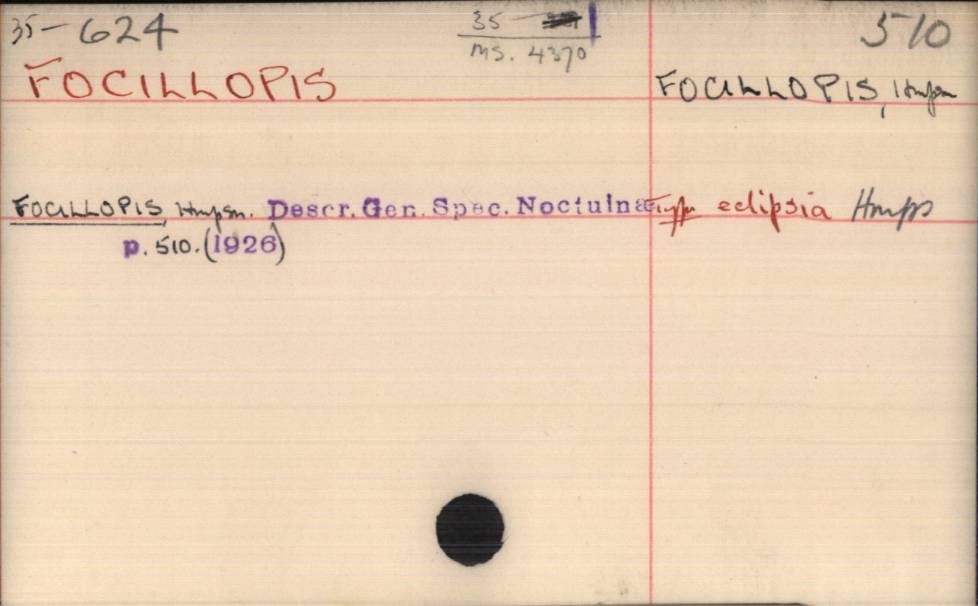 35-624
35
MS. 4370
510
FOCILLOPIS
FOCILLOPIS, Hmpsn
FOCILLOPIS, Hmpsn. Descr. Gen. Spec. Noctuinae Type eclipsia Hmps
p. 510. (1926)